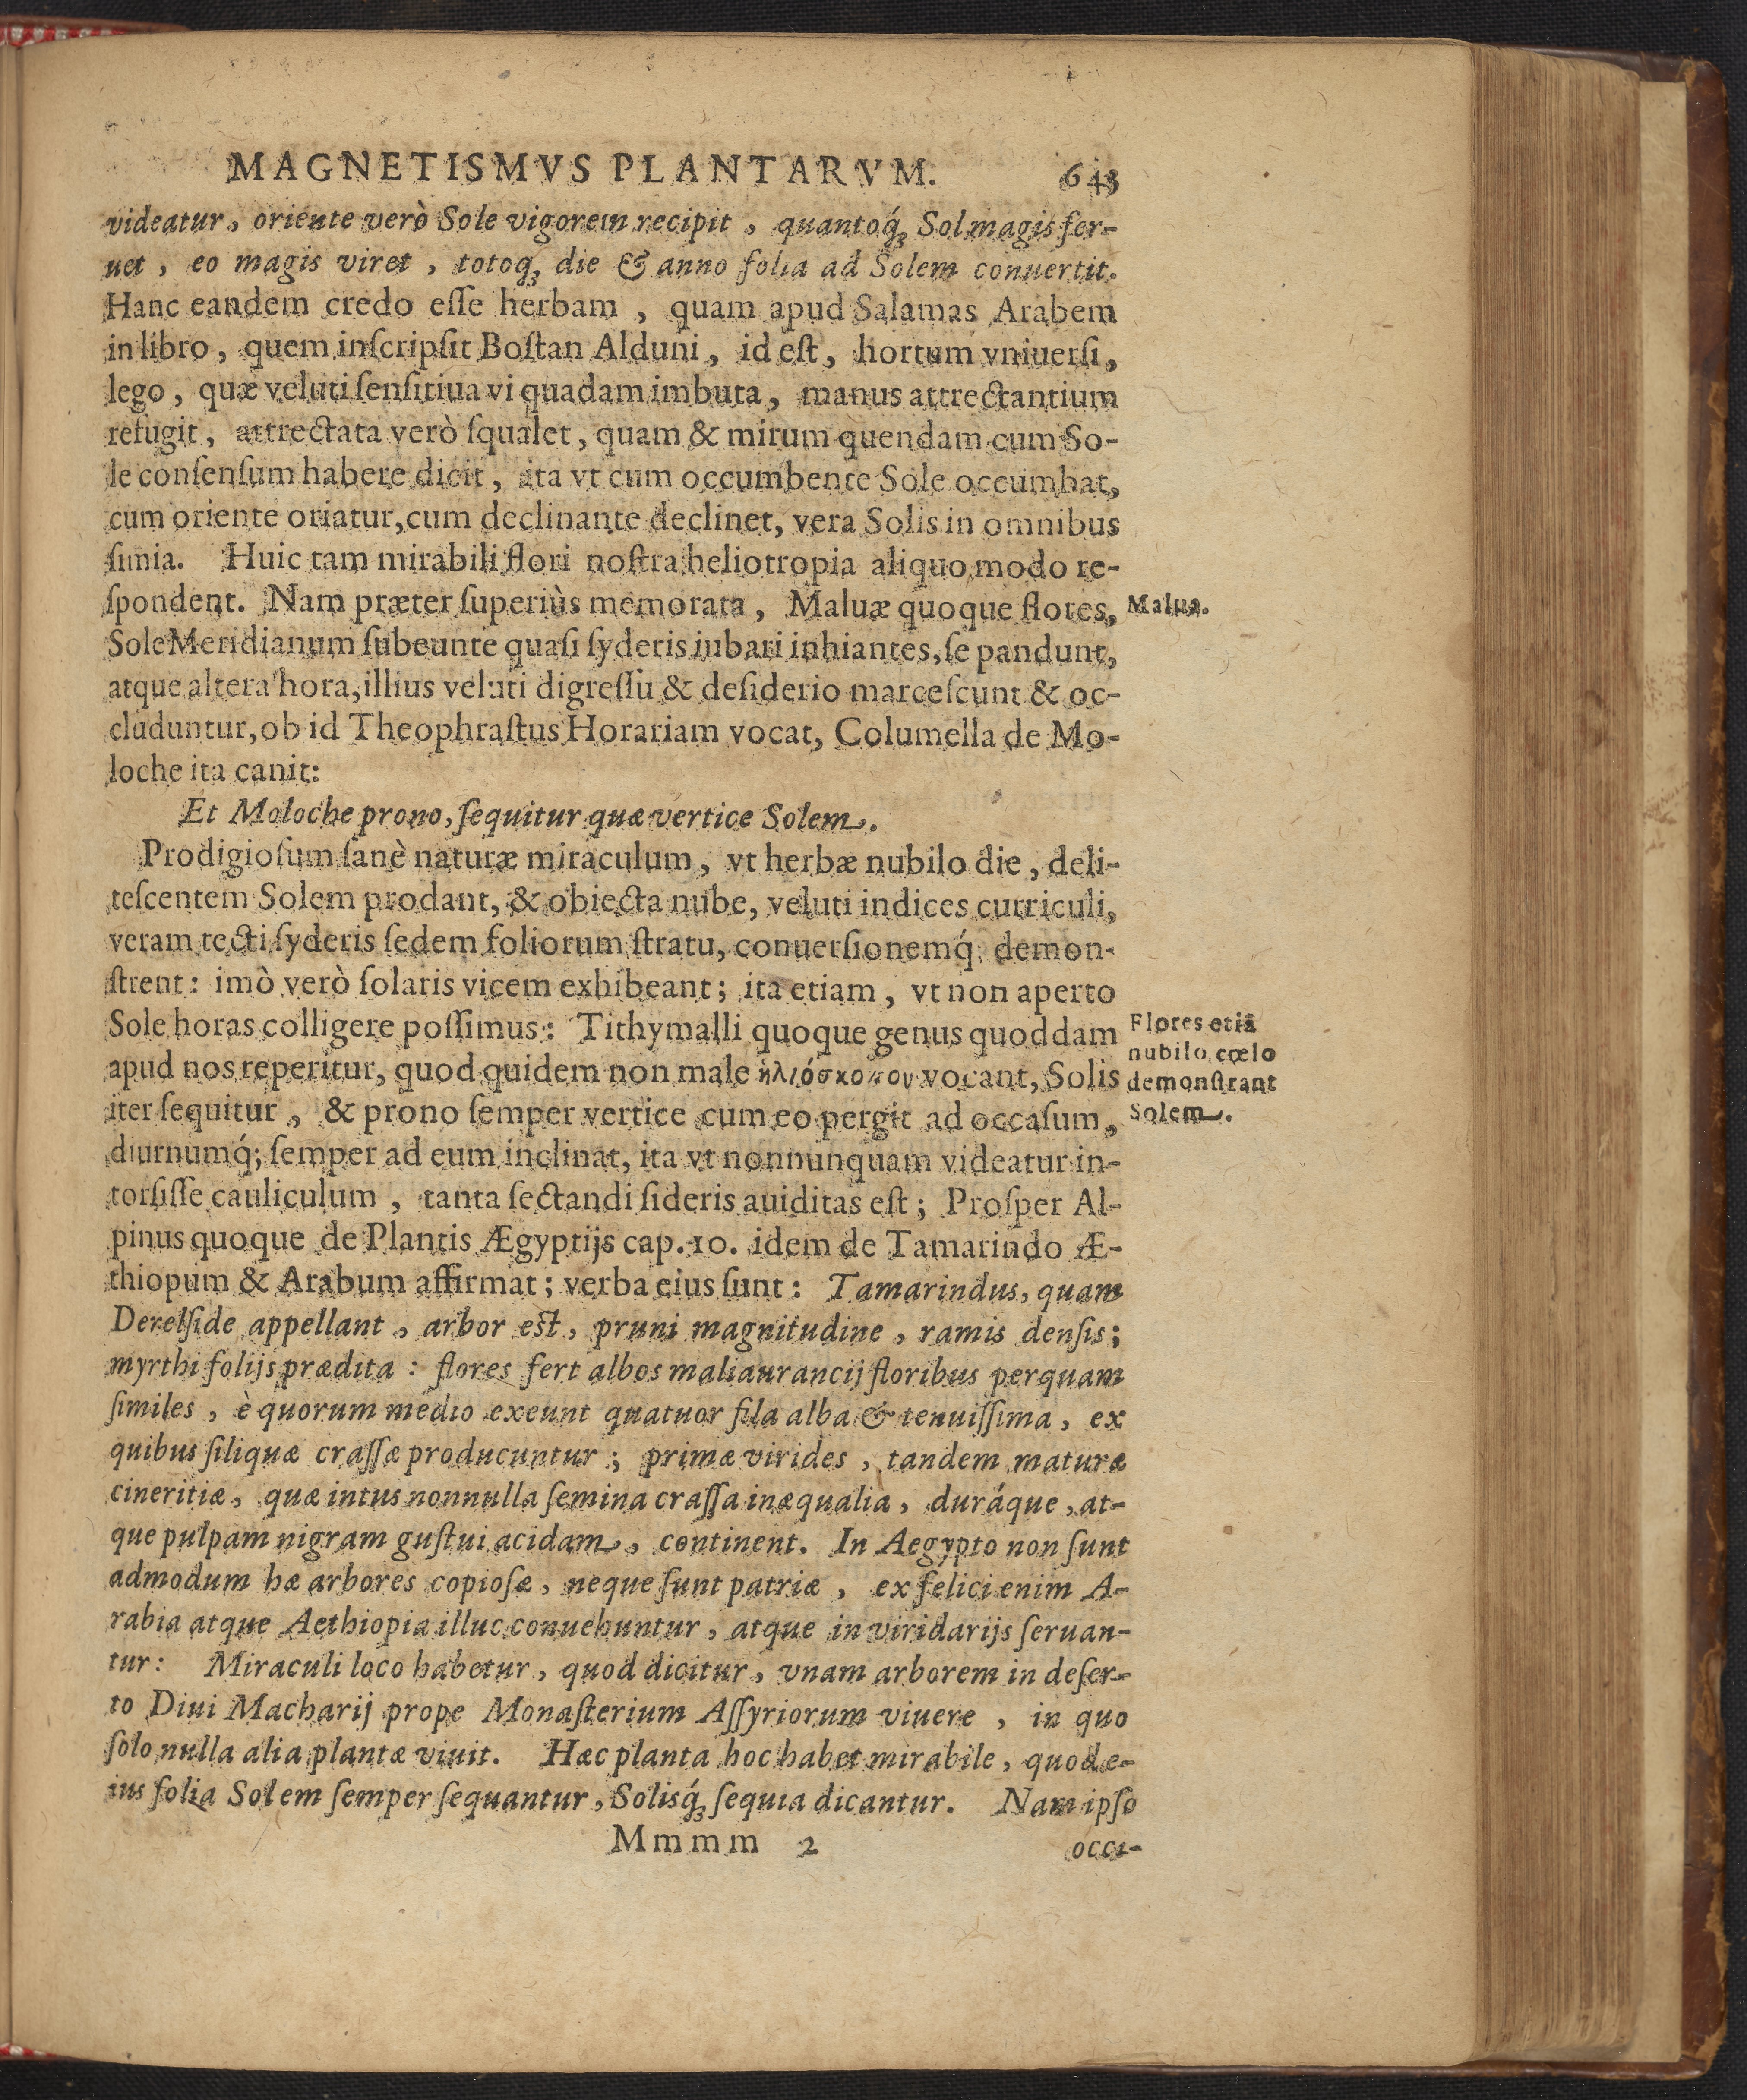 MAGNETISMVS PLANTARVM. 643
videatur, oriente verò Sole vigorem recipit, quantoq́ꝫ Sol magis fer-
uet, eo magis viret, totoqꝫ die & anno folia ad Solem conuertit.
Hanc eandem credo eſſe herbam, quam apud Salamas Arabem
in libro, quem inſcripſit Boſtan Alduni, id eſt, hortum vniuerſi,
lego, quæ veluti ſenſitiua vi quadam imbuta, manus attrectantium
refugit, attrectata verò ſqualet, quam & mirum quendam cum So-
le conſenſum habere dicit, ita vt cum occumbente Sole occumbat,
cum oriente oriatur, cum declinante declinet, vera Solis in omnibus
ſimia. Huic tam mirabili flori noſtra heliotropia aliquo modo re-
ſpondent. Nam præter ſuperiùs memorata, Maluæ quoque flores,
Malua.
Sole Meridianum ſubeunte quaſi ſyderis iubari inhiantes, ſe pandunt,
atque altera hora, illius veluti digreſſu & deſiderio marceſcunt & oc-
cluduntur, ob id Theophraſtus Horariam vocat, Columella de Mo-
loche ita canit:
Et Moloche prono, ſequitur quæ vertice Solem.
Prodigioſum ſanè naturæ miraculum, vt herbæ nubilo die, deli-
teſcentem Solem prodant, & obiecta nube, veluti indices curriculi,
veram tecti ſyderis ſedem foliorum ſtratu, conuerſionemq́; demon-
ſtrent: imò verò ſolaris vicem exhibeant; ita etiam, vt non aperto
Sole horas colligere poſſimus: Tithymalli quoque genus quoddam
apud nos reperitur, quod quidem non male ἡλιόσκοπον vocant, Solis
iter ſequitur, & prono ſemper vertice cum eo pergit ad occaſum,
Flores etiã
nubilo cœlo
demonſtrant
Solem.
diurnumq́; ſemper ad eum inclinat, ita vt nonnunquam videatur in-
torſiſſe cauliculum, tanta ſectandi ſideris auiditas eſt; Proſper Al-
pinus quoque de Plantis Ægyptijs cap. 10. idem de Tamarindo Æ-
thiopum & Arabum affirmat; verba eius ſunt: Tamarindus, quam
Derelſide appellant, arbor eſt, pruni magnitudine, ramis denſis;
myrthi folijs prædita: flores fert albos mali aurancij floribus perquam
ſimiles, è quorum medio exeunt quatuor fila alba & tenuiſſima, ex
quibus ſiliquæ craſſæ producuntur; primæ virides, tandem maturæ
cineritiæ, quæ intus nonnulla ſemina craſſa inæqualia, duráque, at-
que pulpam nigram guſtui acidam, continent. In Aegypto non ſunt
admodum hæ arbores copioſæ, neque ſunt patriæ, ex felici enim A-
rabia atque Aethiopia illuc conuehuntur, atque in viridarijs ſeruan-
tur: Miraculi loco habetur, quod dicitur, vnam arborem in deſer-
to Diui Macharij prope Monaſterium Aſſyriorum viuere, in quo
ſolo nulla alia plantæ viuit. Hæc planta hoc habet mirabile, quod e-
ius folia Solem ſemper ſequantur, Solisq́ꝫ ſequia dicantur. Nam ipſo
Mmmm 2 occi-